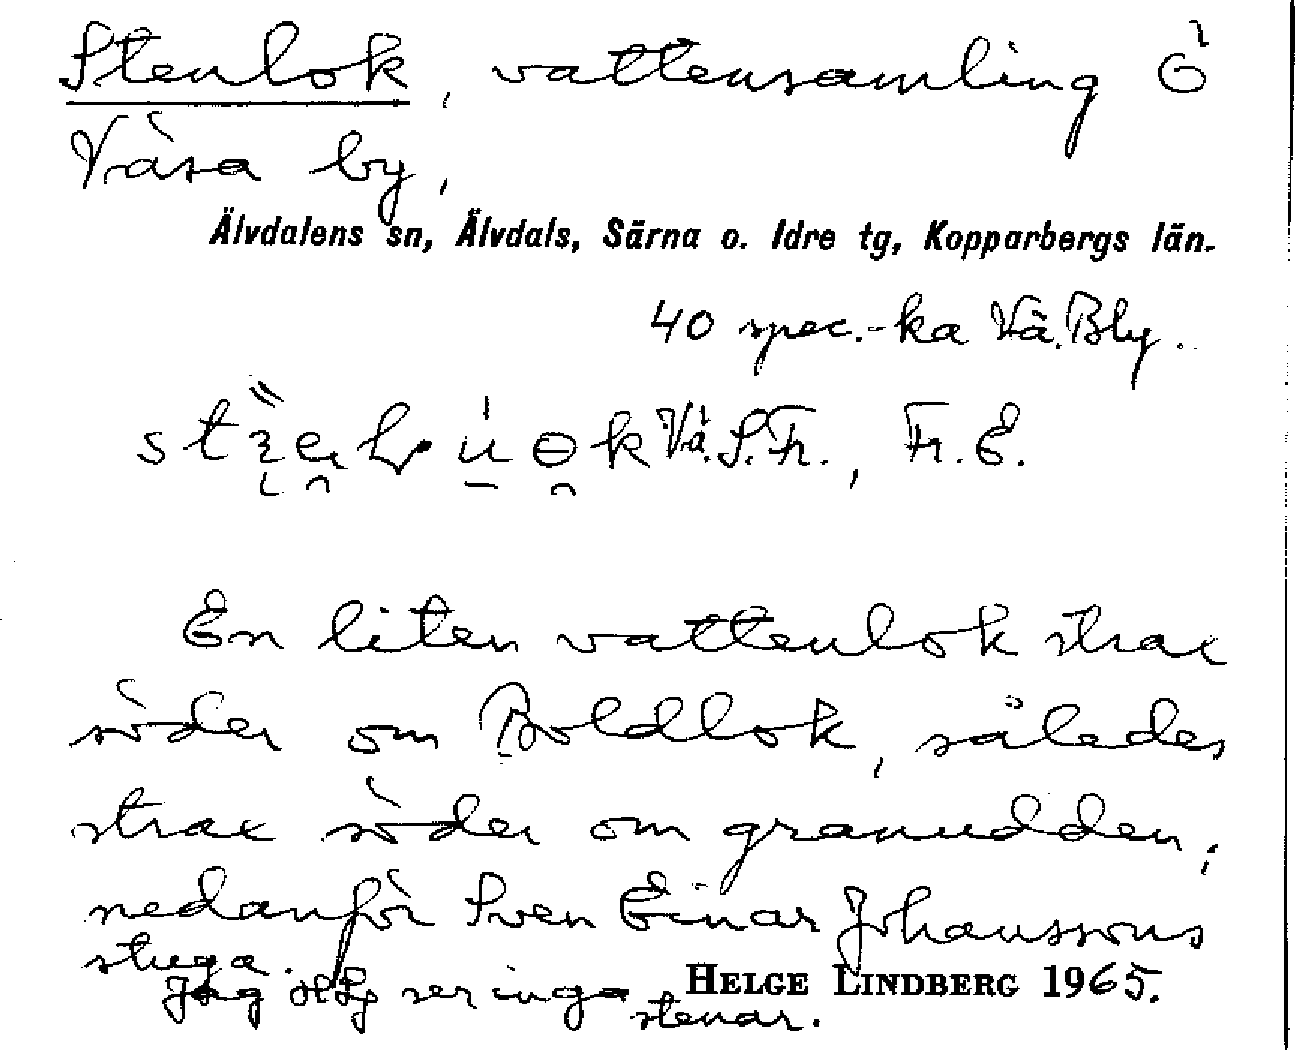 Stenlok, vattensamling Ö
Våsa by,
Älvdalens sn, Älvdals, Särna o. Idre tg, Kopparbergs län.
40 spec.-ka Vå. Bly.
Vå. S. Fr., Fr. E.
En liten vattenlok strax
söder om Boldlok, således
strax söder om granudden,
nedanför Sven Einar Johanssons
stuga.
Jag HLg ser inga stenar.
HELGE LINDBERG 1965.